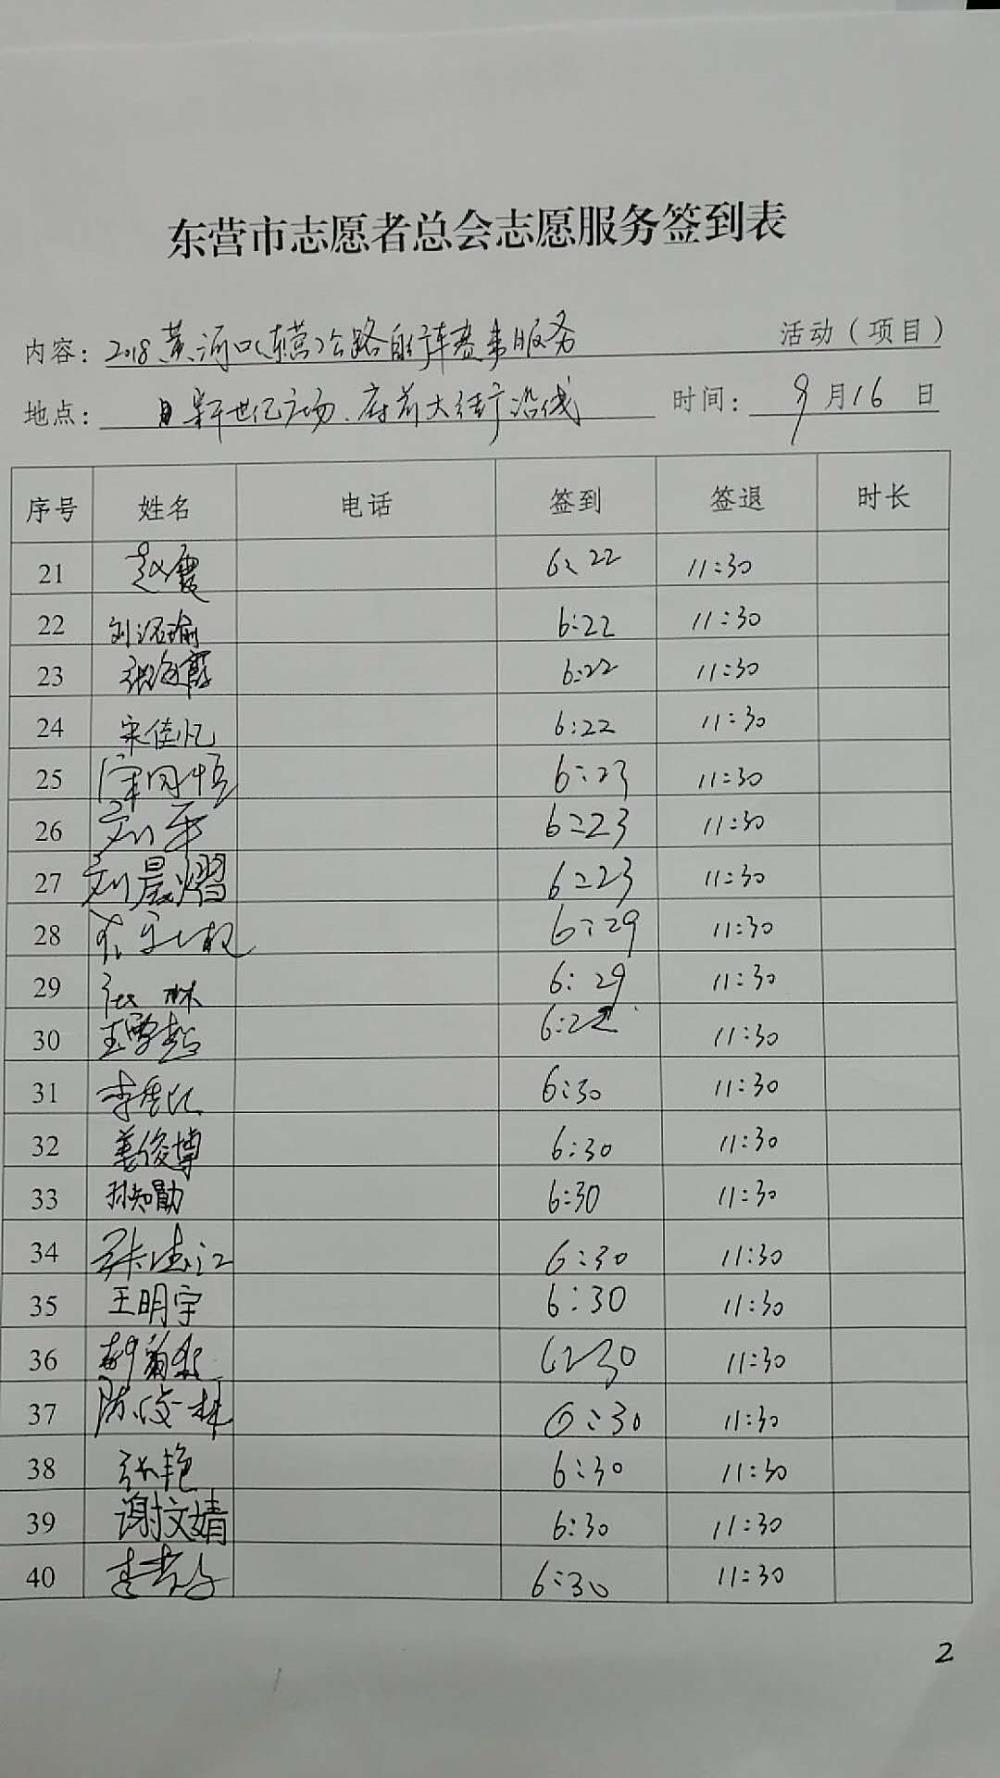 东营市志愿者总会志愿服务签到表
内容：2018黄河口(东营)公路自行车赛事服务 活动（项目）
地点：新世纪广场、府前大街沿线 时间：9月16日
序号 姓名 电话 签到 签退 时长
21 赵霞 6:22 11:30
22 6:22 11:30
23 张海霞 6:22 11:30
24 宋佳忆 6:22 11:30
25 6:23 11:30
26 刘平 6:23 11:30
27 刘晨熠 6:23 11:30
28 6:29 11:30
29 张林 6:29 11:30
30 6:22 11:30
31 6:30 11:30
32 姜俊博 6:30 11:30
33 孙知勖 6:30 11:30
34 6:30 11:30
35 王明宇 6:30 11:30
36 6:30 11:30
37 6:30 11:30
38 张艳 6:30 11:30
39 谢文婧 6:30 11:30
40 6:30 11:30
2